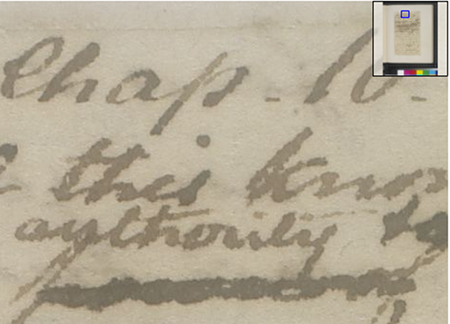 Chap. 10.
this know
authority to